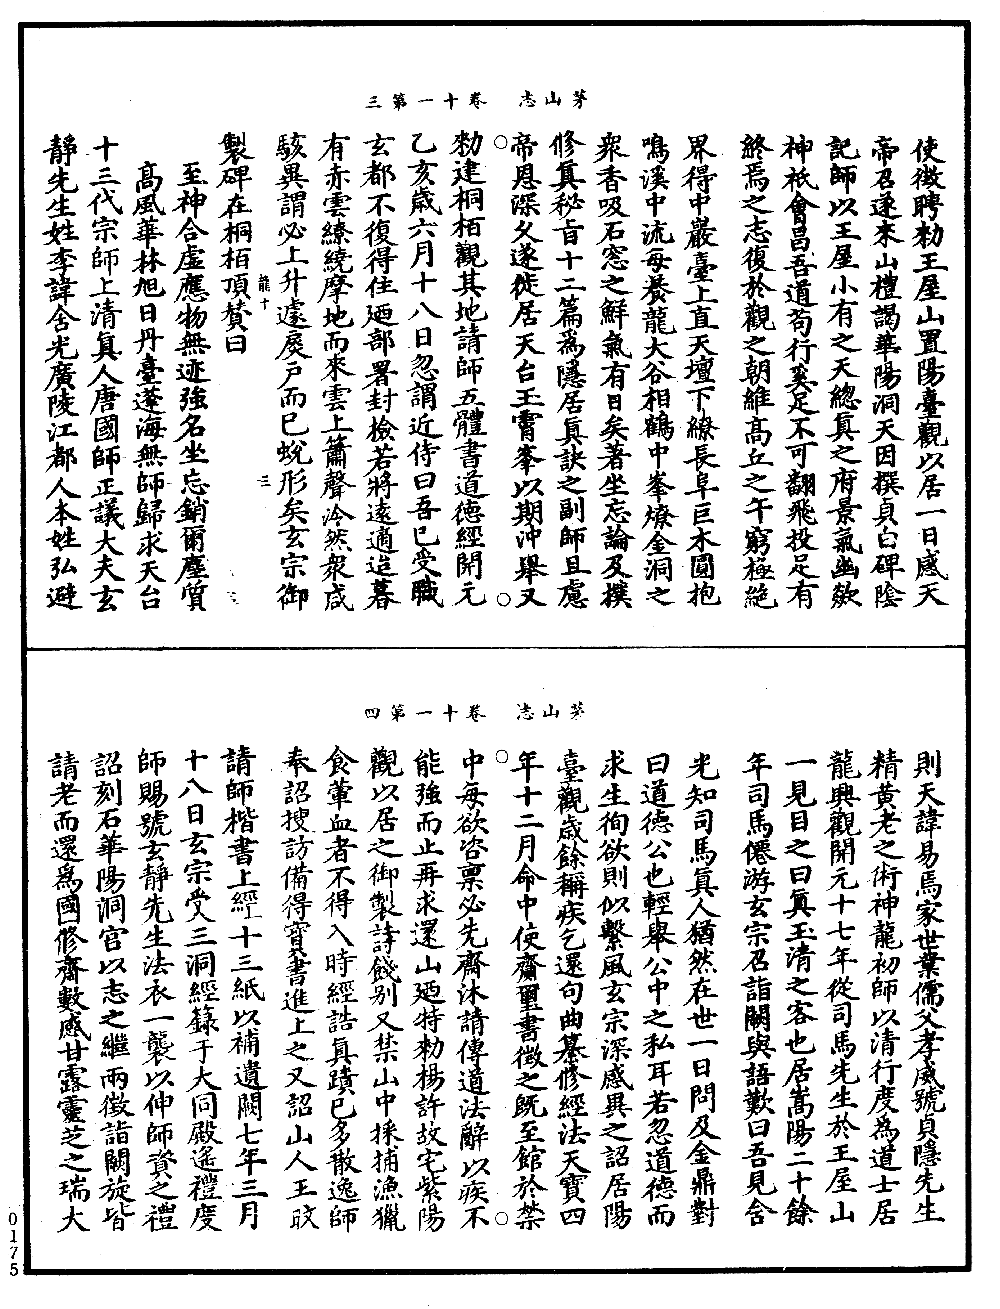 茅山志　卷十一第三
使徵聘勑王屋山置陽臺觀以居一日感天
帝召遂來山禮謁華陽洞天因撰貞白碑陰
記師以王屋小有之天總真之府景氣幽歘
神祇會昌吾道苟行奚足不可翻飛投足有
終焉之志復於觀之朝維高丘之午窮極絕
界得中巖臺上直天壇下繚長阜巨木圓抱
鳴溪中流每養龍大谷相鶴中峯燎金洞之
衆香吸石窓之鮮氣有日矣著坐忘論及撰
修真秘旨十二篇為隱居真訣之副師且慮
帝恩深父遂徙居天台玉霄峯以期沖舉又
勑建桐栢觀其地請師五體書道德經開元
乙亥歲六月十八日忽謂近侍曰吾已受職
玄都不復得住迺部署封檢若將遠適迨暮
有赤雲繚繞摩地而來雲上簫聲泠然衆咸
駭異謂必上升遽戾戶而已蛻形矣玄宗御
製碑在桐栢頂贊曰
龍十　三
至神合虛應物無迹強名坐忘銷爾塵質
高風華林旭日丹臺蓬海無師歸求天台
十三代宗師上清真人唐國師正議大夫玄
靜先生姓李諱含光廣陵江都人本姓弘避
茅山志　卷十一第四
則天諱易焉家世業儒父孝威號貞隱先生
精黃老之術神龍初師以清行度為道士居
龍興觀開元十七年從司馬先生於王屋山
一見目之曰真玉清之客也居嵩陽二十餘
年司馬僊游玄宗召詣闕與語歎曰吾見含
光知司馬真人猶然在世一日問及金鼎對
曰道德公也輕舉公中之私耳若忽道德而
求生徇欲則似繫風玄宗深感異之詔居陽
臺觀歲餘稱疾乞還句曲纂修經法天寶四
年十二月命中使齎璽書徵之既至館於禁
中每欲咨稟必先齋沐請傳道法辭以疾不
能強而止再求還山迺特勑楊許故宅紫陽
觀以居之御製詩餞别又禁山中採捕漁獵
食葷血者不得入時經誥真蹟已多散逸師
奉詔搜訪備得寶書進上之又詔山人王旼
請師楷書上經十三紙以補遺闕七年三月
十八日玄宗受三洞經籙于大同殿遙禮度
師賜號玄靜先生法衣一襲以伸師資之禮
詔刻石華陽洞宮以志之繼兩徵詣闕旋皆
請老而還為國修齋數感甘露靈芝之瑞大
0175